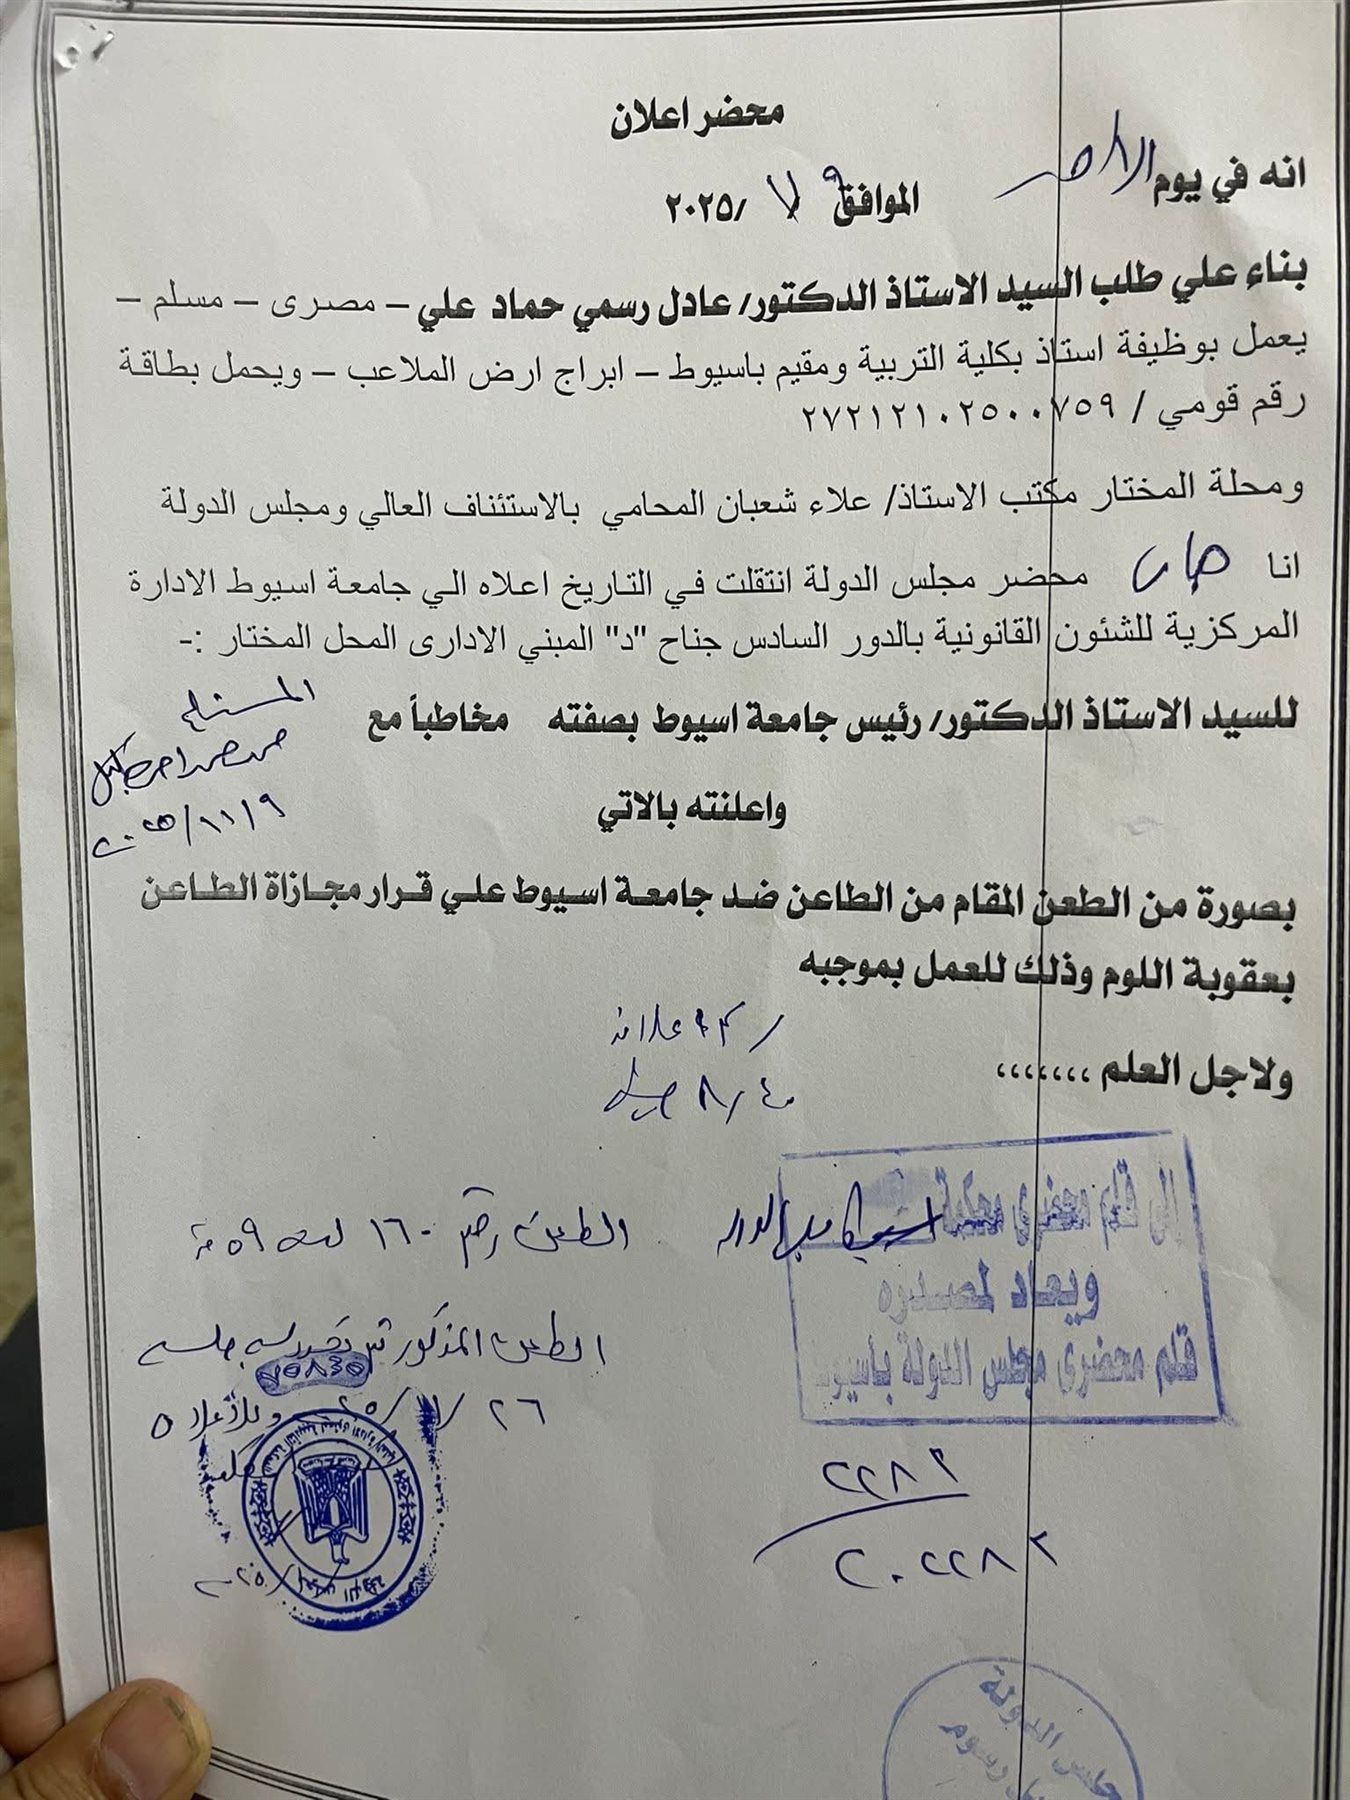 محضر اعلان
انه في يوم الاحد
الموافق ٩ / ١١ /٢٠٢٥
بناء علي طلب السيد الاستاذ الدكتور/ عادل رسمي حماد علي – مصرى – مسلم –
يعمل بوظيفة استاذ بكلية التربية ومقيم باسيوط – ابراج ارض الملاعب – ويحمل بطاقة
رقم قومي / ٢٧٢١٢١٠٢٥٠٠٧٥٩
ومحلة المختار مكتب الاستاذ/ علاء شعبان المحامي بالاستئناف العالي ومجلس الدولة
انا محضر مجلس الدولة انتقلت في التاريخ اعلاه الي جامعة اسيوط الادارة
المركزية للشئون القانونية بالدور السادس جناح "د" المبني الادارى المحل المختار :-
للسيد الاستاذ الدكتور/ رئيس جامعة اسيوط بصفته مخاطباً مع
المستلم
٢٠٢٥/١١/٩
واعلنته بالاتي
بصورة من الطعن المقام من الطاعن ضد جامعة اسيوط علي قرار مجازاة الطاعن
بعقوبة اللوم وذلك للعمل بموجبه
ولاجل العلم ،،،،،،،
الى قلم محضرى محكمة
اسيوط مجلس الدولة
ويعاد لمصدره
قلم محضرى مجلس الدولة بأسيوط
الطعن رقم ١٦٠ لسنة ٥٩
الطعن المذكور تم تحديد له جلسة
٢٦ / ١١ /
٢٢٨٢
٢٠٢٢٨٢
مجلس الدولة